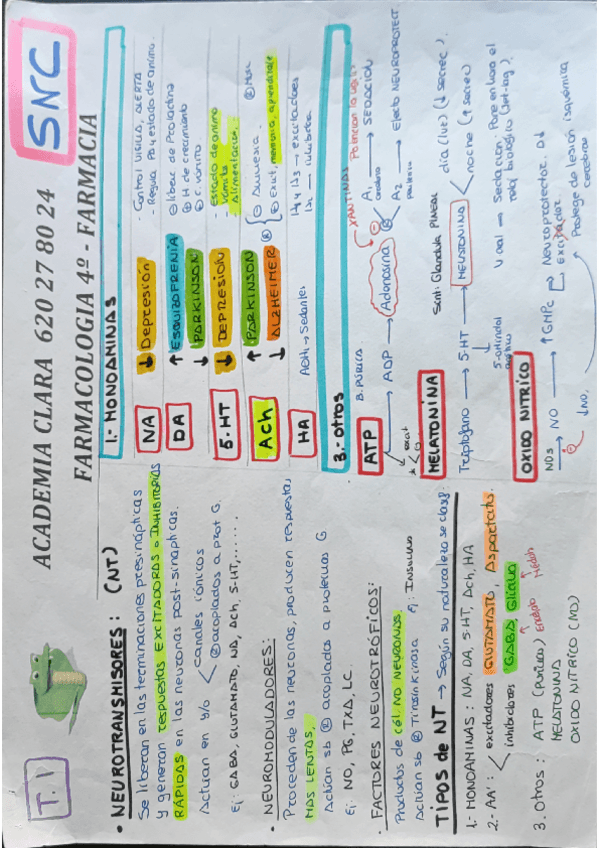 T.1
ACADEMIA CLARA 620 27 80 24
FARMACOLOGIA 4º - FARMACIA
SNC
• NEUROTRANSMISORES: (NT)
Se liberan en las terminaciones presinápticas
y generan respuestas EXCITADORAS o INHIBITORIAS
RÁPIDAS en las neuronas post-sinápticas.
Actúan en y/o
canales iónicos
® acoplados a prot G.
Ej: GABA, GLUTAMATO, NA, ACh, 5-HT,......
• NEUROMODULADORES:
Proceden de las neuronas, producen respuestas
MAS LENTAS,
Actúan sb ® acoplados a proteínas G
Ej: NO, PG, TXA, LC.
• FACTORES NEUROTROFICOS:
Productos de cél. NO NEURONAS,
Actúan sb ® Tirosin Kinasa Ej: INSULINA
TIPOS de NT → Según su naturaleza se clasf:
1.- MONOAMINAS: NA, DA, 5-HT, ACh, HA
2.- AA':
excitadores GLUTAMATO, Aspartato.
inhibidores GABA Glicina
Encéfalo
Médula
3. Otros: ATP (purina)
MELATONINA
OXIDO NITRICO (NO)
1.- MONOAMINAS
NA
↓ Depresión
- Control VIGILIA, ALERTA
- Regula PA y estado de animo.
DA
↑ ESQUIZOFRENIA
↓ PARKINSON
⊖ liberac de Prolactina
⊕ H de crecimiento
⊕ C. vómito
5-HT
↓ DEPRESION
Estado de animo
Vómito
Alimentación
ACh
↑ PARKINSON
↓ ALZHEIMER
⊕ Excit, memoria, aprendizaje
HA
AntiH → Sedantes
H1 y H3 → excitadores
H2 → inhibitorio
3.- otros
ATP
B. PÚRICA
→ ADP → Adenosina
XANTINAS
Potencian la vigilia
A1
cerebro
→ SEDACION
A2
→ Efecto NEUROPROTECT
MELATONINA
Sint: Glandula PINEAL
Triptofano → 5-HT → MELATONINA
día (luz) (↓ secrec).
noche (↑ secrec)
V. oral → Sedación: Pone en hora el
reloj biológico (Jet-lag)
OXIDO NITRICO
NOs → NO → ↑ GMPc
Neuroprotector
Excitador
↓NO.
Protege de lesión isquémica
cerebral